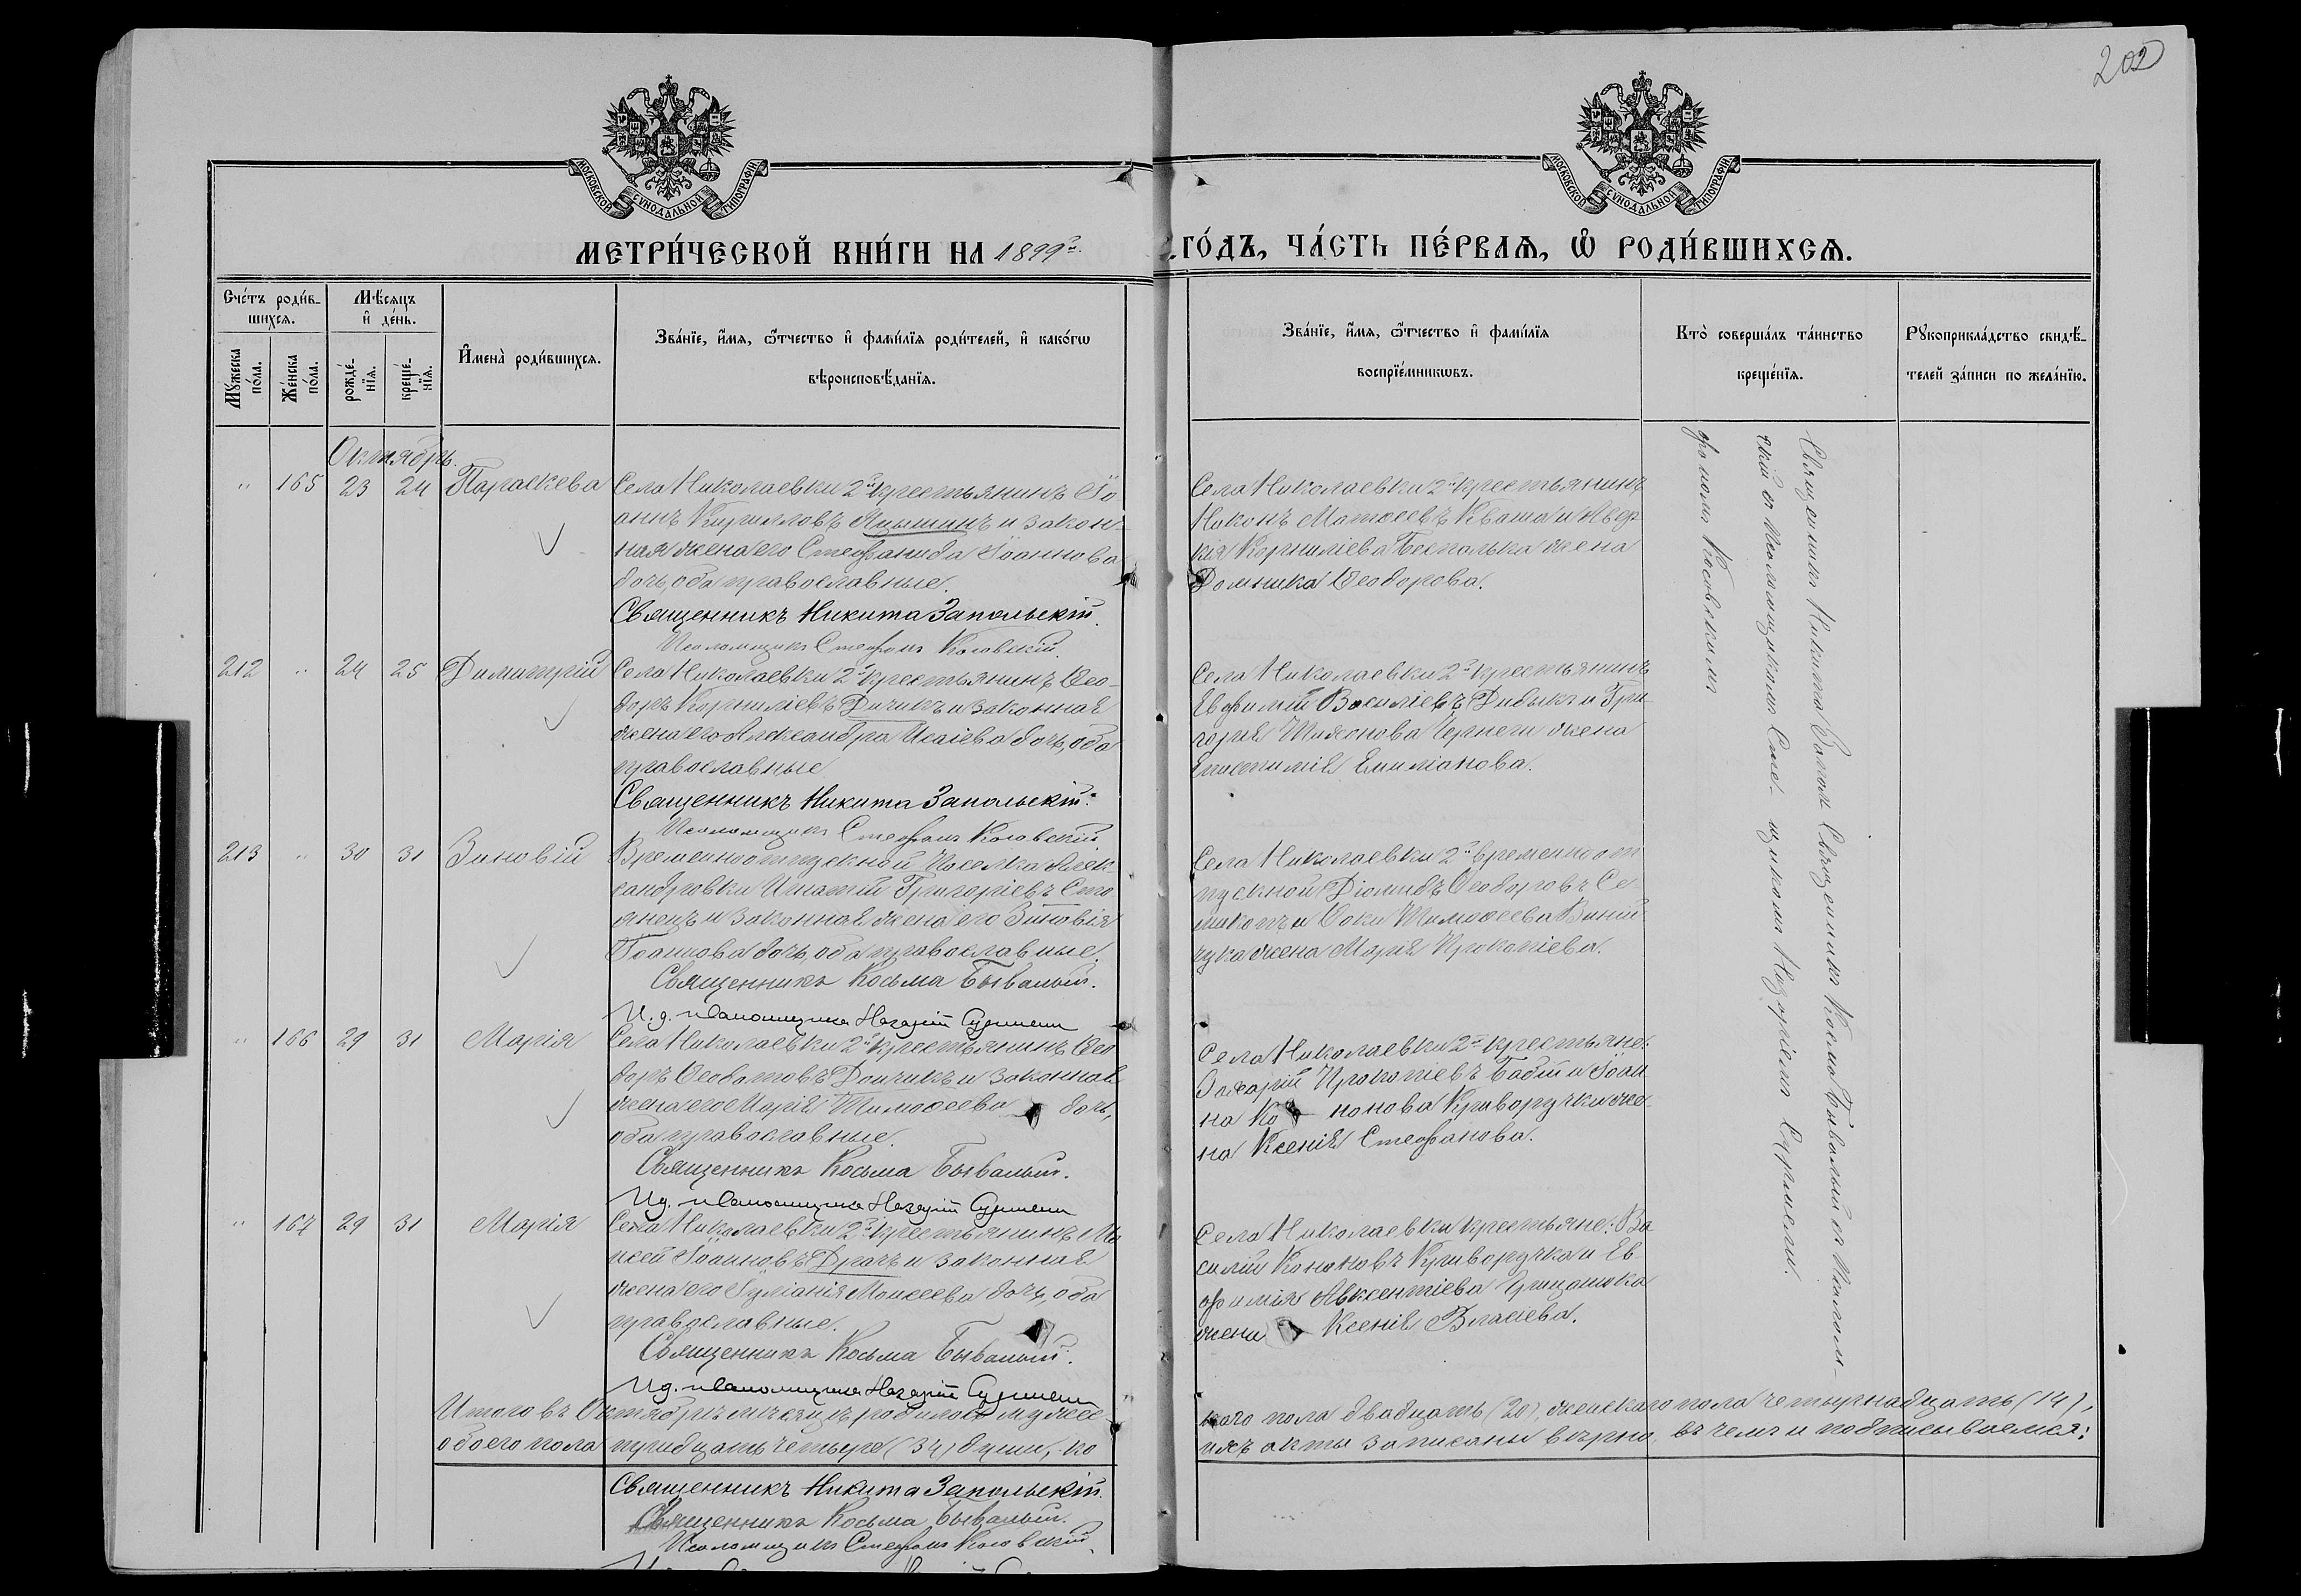 202
МОСКОВСКОЙ СѴНОДАЛЬНОЙ ТИПОГРАФІИ
МОСКОВСКОЙ СѴНОДАЛЬНОЙ ТИПОГРАФІИ
МЕТРИ́ЧЕСКОЙ КНИ́ГИ НА 1899й
ГО́ДЪ, ЧА́СТЬ ПЕ́РВАѦ, Ѡ҆ РОДИ́ВШИХСѦ.
Сче́тъ роди́в-
шихсѧ.
Мꙋ́жеска по́ла.
Же́нска по́ла.
Мѣ́сяцъ
и҆ де́нь.
рожде́-
нїѧ.
креще́-
нїѧ.
И҆мена̀ роди́вшихсѧ.
Зва́нїе, и҆́мѧ, ѻ҆́тчество и҆ фами́лїѧ роди́телей, и҆ како́гѡ
вѣроисповѣ́данїѧ.
Зва́нїе, и҆́мѧ, ѻ҆́тчество и҆ фами́лїѧ
воспрїе́мникѡвъ.
Кто̀ соверша́лъ та́инство
креще́нїѧ.
Рꙋкоприкла́дство свидѣ́-
телей за́писи по жела́нїю.
Октябрь.
" 165 23 24 Параскева
Села Николаевки 2й крестьянинъ Іо
аннъ Кирилловъ Яцышинъ и закон-
ная жена его Стефанида Іоаннова
дочь, оба православные.
Священникъ Никита Запольскій.
Псаломщикъ Стефанъ Косовскій.
Села Николаевки 2й крестьянинъ
Никонъ Матѳеевъ Кваша и Авер-
кія Корниліева Беспалька жена
Домника Ѳеодорова.
212 " 24 25 Димитрій
Села Николаевки 2й крестьянинъ Ѳео-
доръ Корниліевъ Дичикъ и законная
жена его Александра Исаіева дочь, оба
православные
Священникъ Никита Запольскій.
Псаломщикъ Стефанъ Косовскій.
Села Николаевки 2й крестьянинъ
Евфимій Василіевъ Дидыкъ и Гри-
горія Тихонова Чернеги жена
Епистимія Емиліанова.
213 " 30 31 Зиновій
Временноотпускной Поселка Алек-
сандровки Игнатій Григоріевъ Сто
янецъ и законная жена его Зиновія
Іоаннова дочь, оба православные.
Священникъ Косьма Бывалый.
И.д. псаломщика Назарій
Села Николаевки 2й временноот
пускной Діомидъ Ѳеодоровъ Се-
и Фоки Тимоѳеева Виній
чука жена Марія Прокопіева.
" 166 29 31 Марія
Села Николаевки 2й крестьянинъ Ѳео
доръ Ѳеодотовъ Дончикъ и законная
жена его Марія Тимоѳеева дочь,
оба православные.
Священникъ Косьма Бывалый.
И.д. псаломщика Назарій
Села Николаевки 2й крестьяне:
Захарій Прокопіевъ Бабій и Іоан
на Ко нонова Криворучки же-
на Ксенія Стефанова.
" 167 29 31 Марія
Села Николаевки 2й крестьянинъ Мо
исей Іоанновъ Драчъ и законная
жена его Іуліанія Моисеева дочь, оба
православные.
Священникъ Косьма Бывалый.
И.д. псаломщика Назарій
Села Николаевки крестьяне: Ва
силій Кононовъ Криворучка и Ев
фимія Авксентіева
жена Ксенія Власіева.
Священникъ Никита Заполь
скій съ Псаломщикомъ Сте-
фаномъ Косовскимъ
Священникъ Косма Бывалый съ Псалом-
щикомъ Назаріемъ
Итого въ Октябрѣ мѣсяцѣ родилось мужес-
каго пола двадцать (20), женскаго пола четырнадцать (14),
обоего пола тридцать четыре (34) души, ко
ихъ акты записаны вѣрно, въ чемъ и подписываемся:
Священникъ Никита Запольскій.
Священникъ Косьма Бывалый.
Псаломщикъ Стефанъ Косовскій.